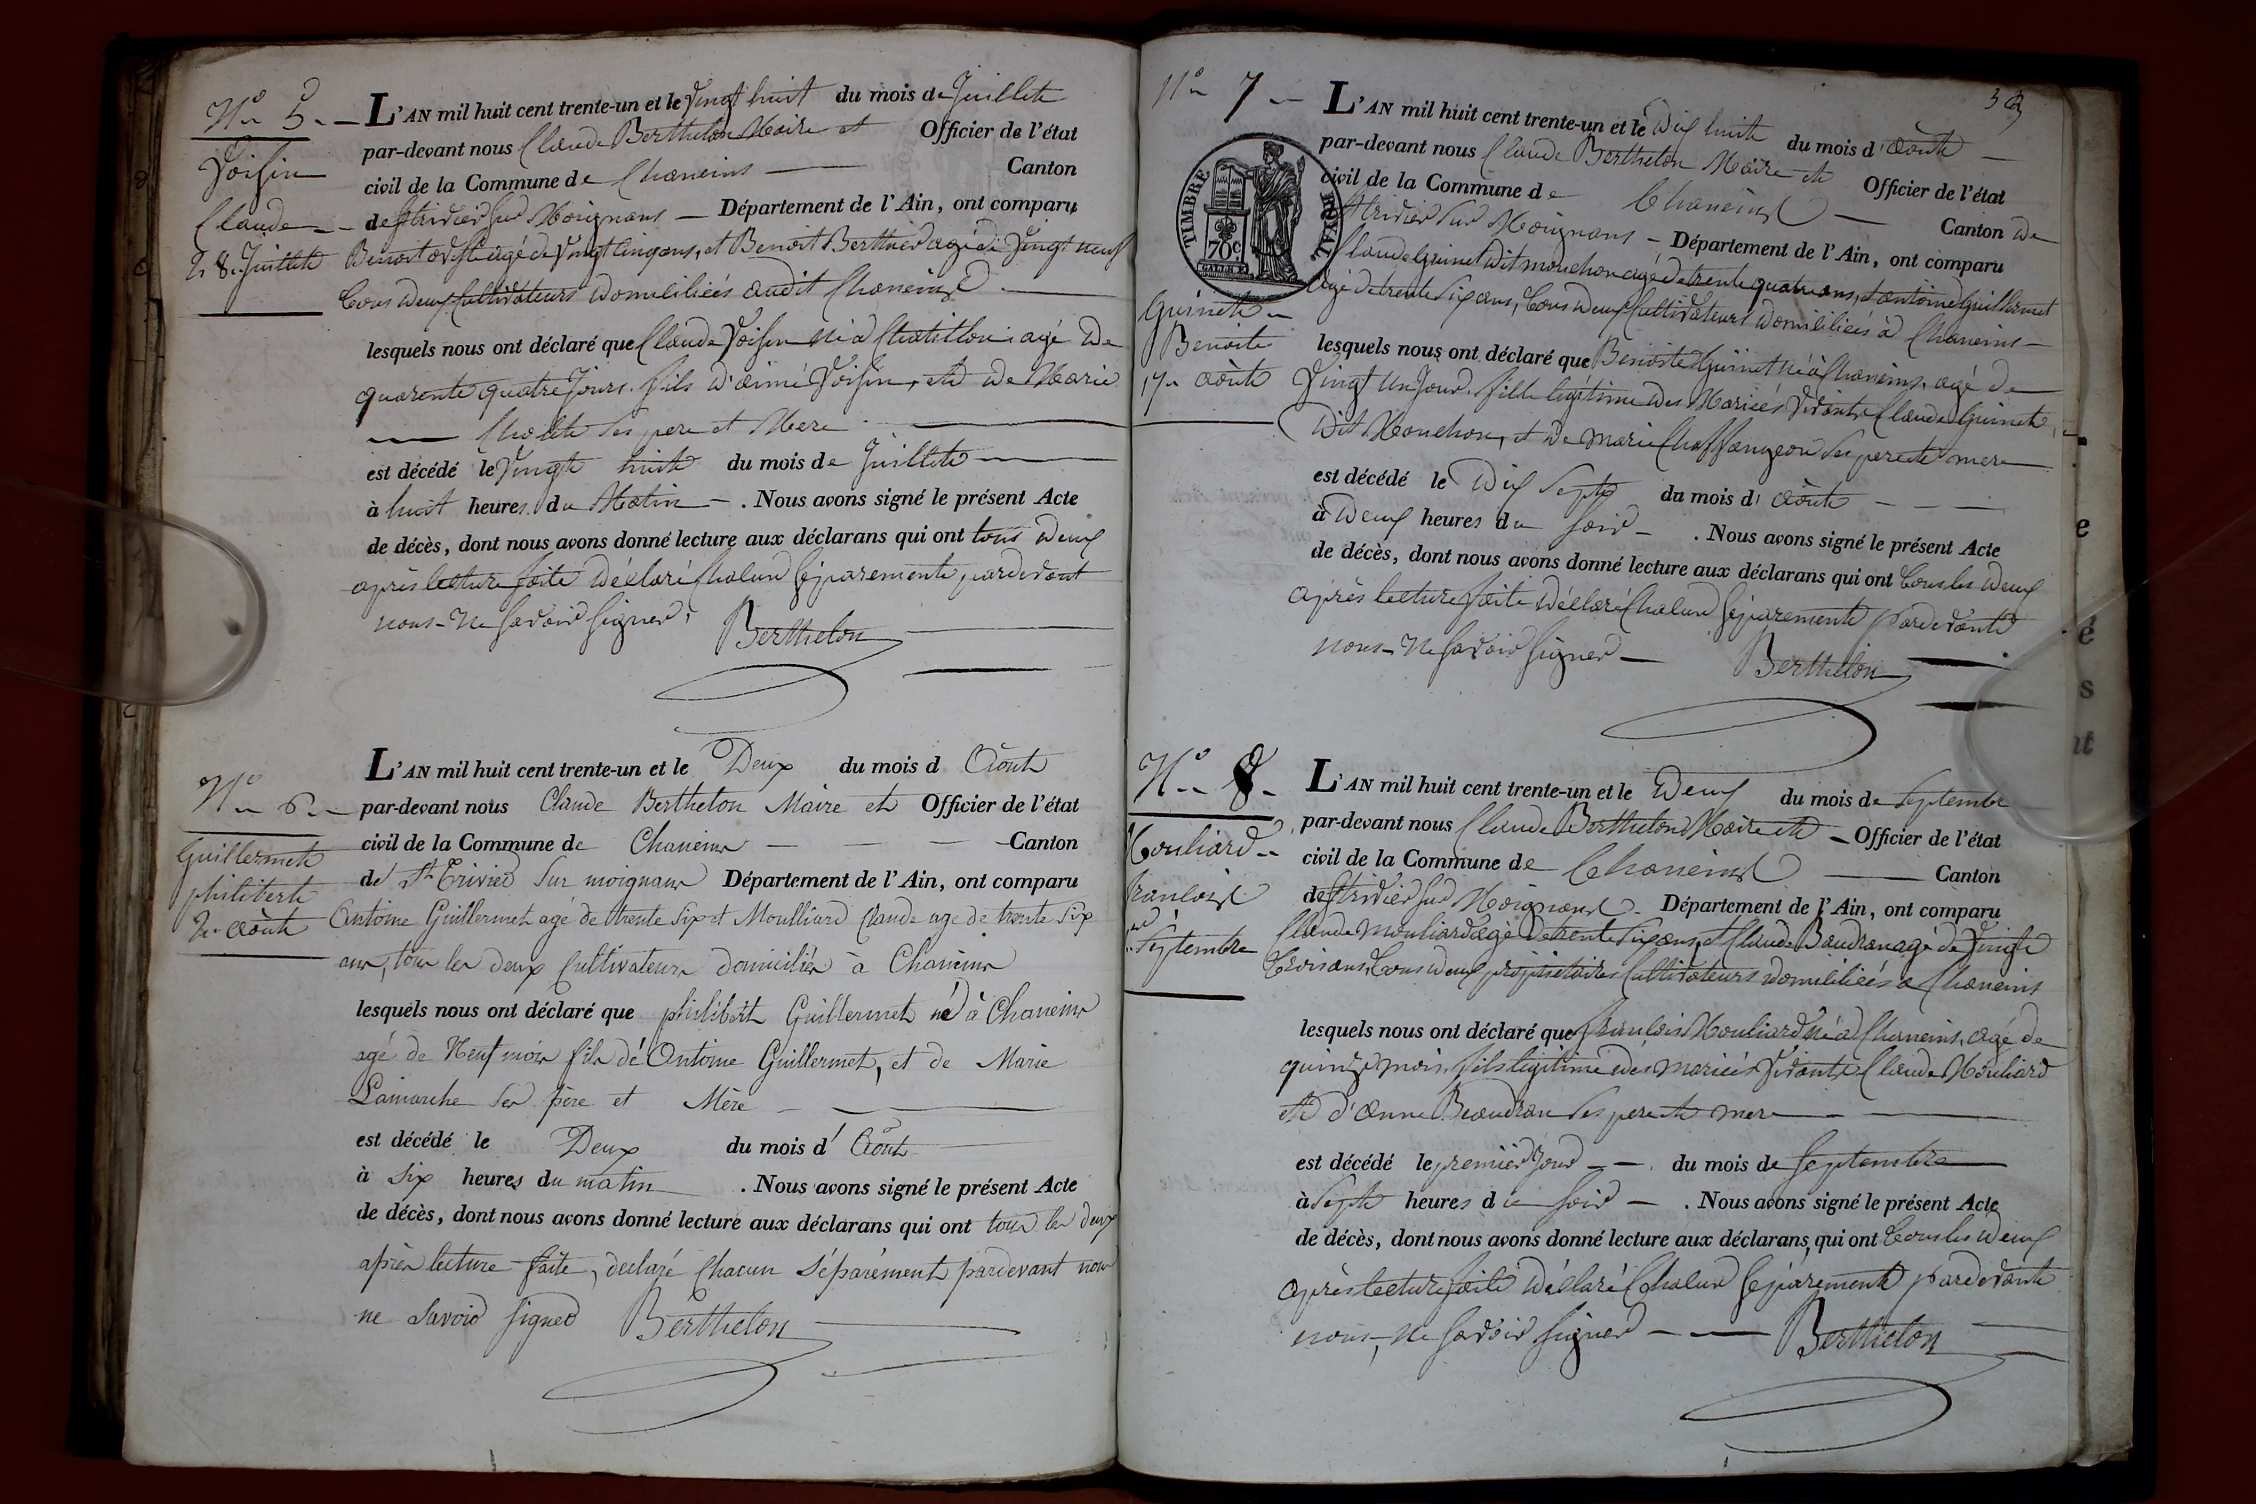 N° 5.
Voisin
Claude
28. Juillet
L'AN mil huit cent trente-un et le Vingt huit du mois de Juillet
par-devant nous Claude Berthelon Maire et Officier de l'état
civil de la Commune de Chaneins Canton
de St trivier sur Moignans Département de l'Ain, ont comparu
Benoit agé de Vingt cinq ans, et Benoit Berthier agé de Vingt neuf
tous deux Cultivateurs domiciliés audit Chaneins
lesquels nous ont déclaré que Claude Voisin né à Chatillon agé de
quarente quatre Jours. fils d'aimé Voisin, et de Marie
Ses pere et Mere
est décédé le Vingt huit du mois de Juillet
à huit heures du Matin. Nous avons signé le présent Acte
de décès, dont nous avons donné lecture aux déclarans qui ont tous deux
après lecture faite déclaré Chacun Séparement, pardevant
nous ne Savoir Signer.
Berthelon
N° 6.
Guillermet
philibert
2. août
L'AN mil huit cent trente-un et le Deux du mois d Août
par-devant nous Claude Berthelon Maire et Officier de l'état
civil de la Commune de Chaneins Canton
de St Trivier Sur moignans Département de l'Ain, ont comparu
Antoine Guillermet agé de trente Six et Moulliard Claude age de trente Six
ans, tous les deux Cultivateurs domiciliés à Chaneins
lesquels nous ont déclaré que philibert Guillermet né à Chaneins
agé de Neuf mois fils de Antoine Guillermet, et de Marie
Lamarche Ses père et Mère
est décédé le Deux du mois d' Août
à Six heures du matin. Nous avons signé le présent Acte
de décès, dont nous avons donné lecture aux déclarans qui ont tous les deux
après lecture faite, declaré Chacun Séparément pardevant nous
ne Savoir signer Berthelon
N° 7
TIMBRE ROYAL
70c
Guinet
Benoite
17. août
L'AN mil huit cent trente-un et le Dix huit du mois d' août
par-devant nous Claude Berthelon Maire et Officier de l'état
civil de la Commune de Chaneins Canton de
St trivier Sur Moignans Département de l'Ain, ont comparu
Claude Guinet dit mouchon agé de trente quatre ans, et antoine Guillermet
agé de trente Six ans, tous deux Cultivateurs domiciliés à Chaneins
lesquels nous ont déclaré que Benoite Guinet né à Chaneins. agé de
Vingt Un Jour. fille legitime des Mariés Vivants Claude Guinet
dit Mouchon, et de marie Chaffangeon Ses pere et mere
est décédé le dix Sept du mois d' août
à deux heures du Soir. Nous avons signé le présent Acte
de décès, dont nous avons donné lecture aux déclarans qui ont tous les deux
après lecture faite déclaré Chacun Séparement pardevant
nous ne Savoir Signer
Berthelon
N° 8.
Mouliard
francois
Septembre
L'AN mil huit cent trente-un et le deux du mois de Septembre
par-devant nous Claude Berthelon Maire et Officier de l'état
civil de la Commune de Chaneins Canton
de St trivier Sur Moignans. Département de l'Ain, ont comparu
Claude Mouliard agé de trente Six ans, et Claude Baudran agé de Vingt
trois ans, tous deux propriétaires Cultivateurs domiciliés à Chaneins
lesquels nous ont déclaré que francois Mouliard né à Chaneins. agé de
quinze mois. fils legitime des mariés Vivants Claude Mouliard
et d'anne Beaudran Ses pere et mere
est décédé le premier Jour du mois de Septembre
à Sept heures du Soir. Nous avons signé le présent Acte
de décès, dont nous avons donné lecture aux déclarans qui ont tous les deux
après lecture faite déclaré Chacun Séparement pardevant
nous, ne Savoir Signer Berthelon